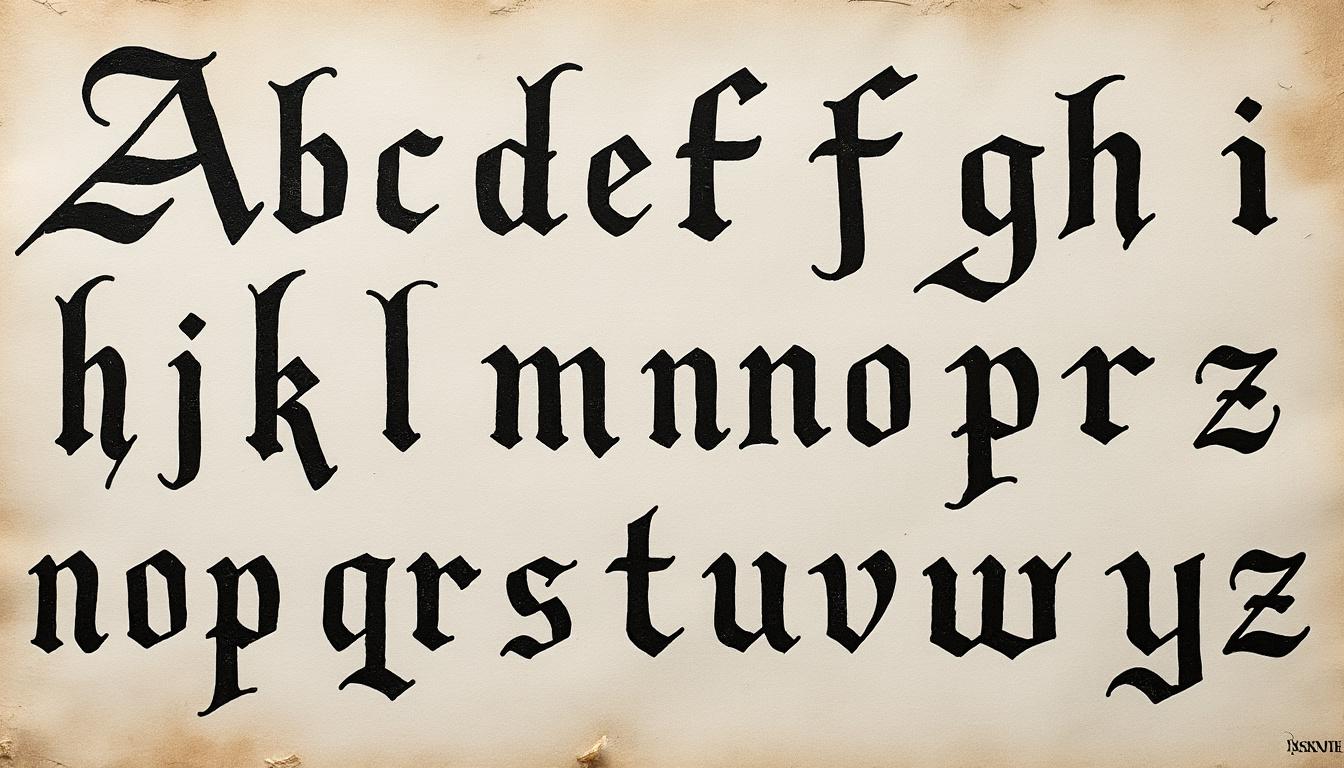 Abcdeff gh i
hjkl mnnoprz
nopqrstuvwyz